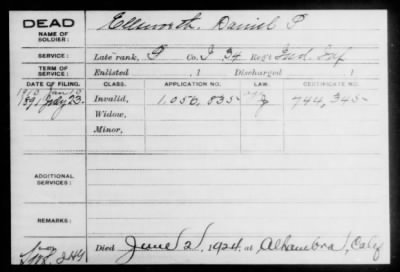 DEAD
NAME OF SOLDIER:
Ellsworth, Daniel P
SERVICE:
Late rank, P Co. I 34 Reg't Ind. Inf
TERM OF SERVICE:
Enlisted , 1 Discharged , 1
DATE OF FILING. CLASS. APPLICATION NO. LAW. CERTIFICATE NO.
1891 July 23 Invalid, 1,050,835 744,345
Widow,
Minor,
ADDITIONAL SERVICES:
REMARKS:
Died June 2, 1924, at Alhambra, Calif